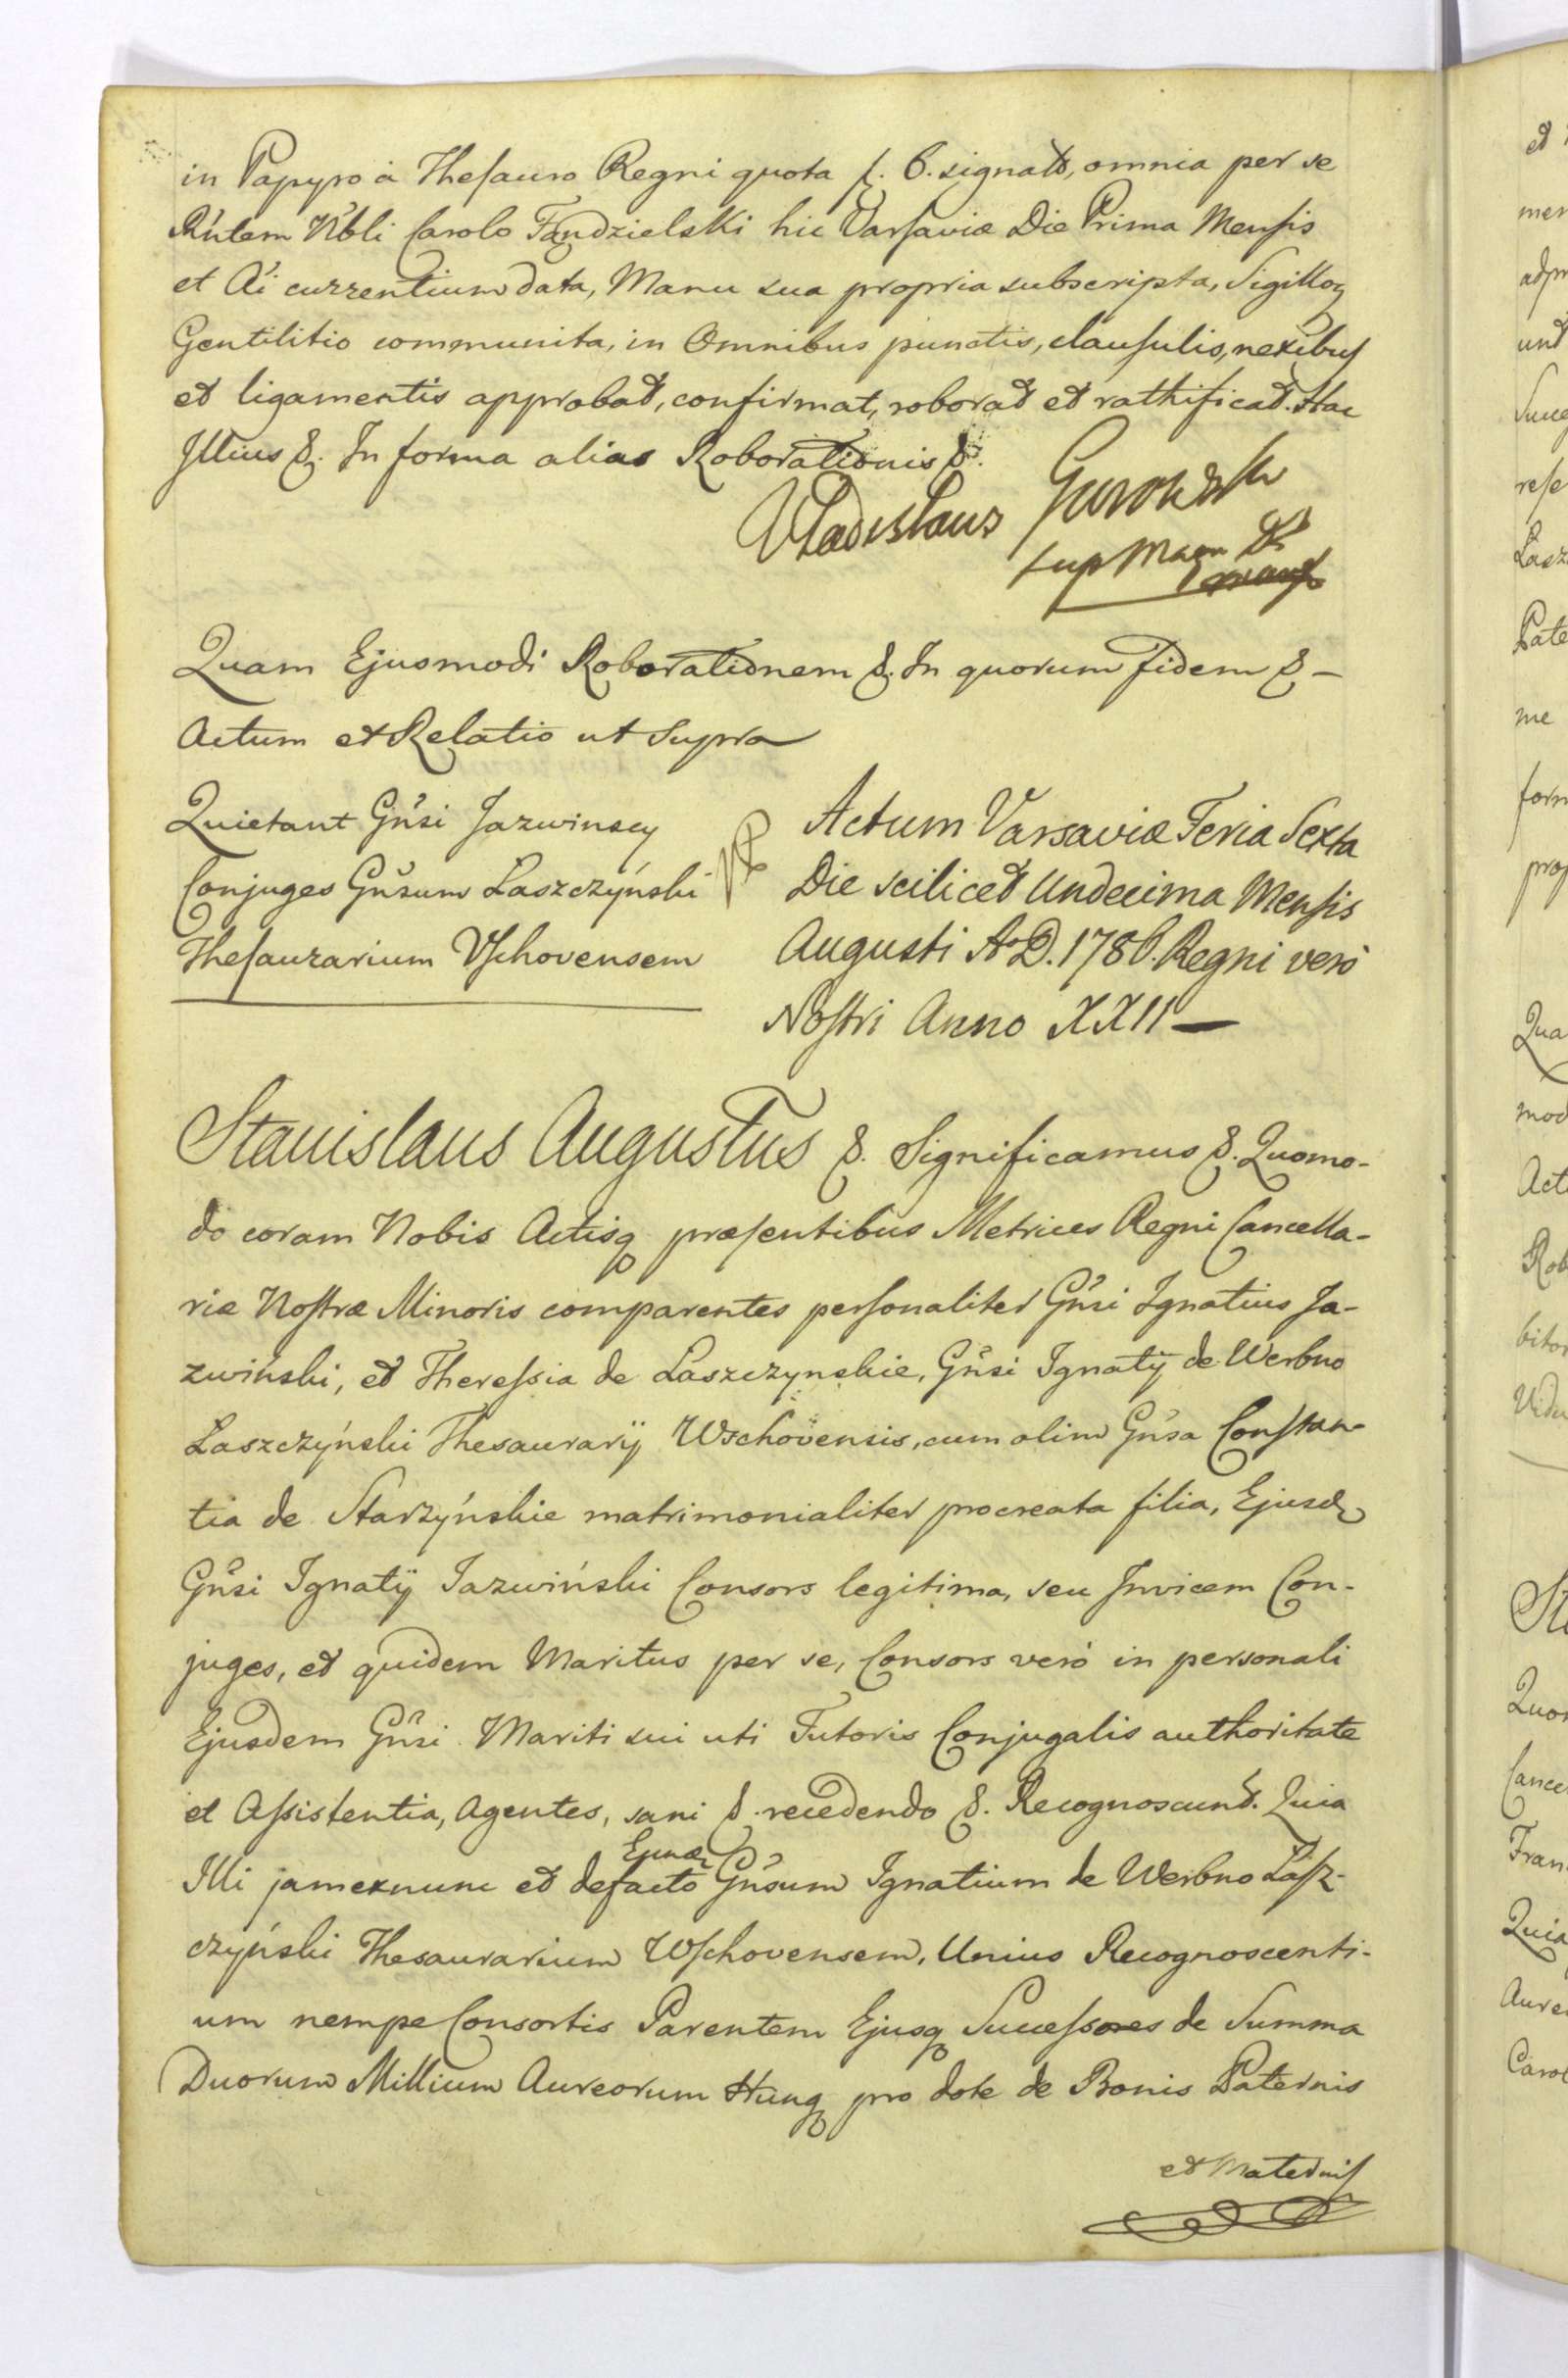 in Papyro à Thesauro Regni quota f. 6. signato, omnia per se
Rńtem Nbli Carolo Fandzielski hic Varsaviæ Die Prima Mensis
et Ai currentium data, Manu sua propria subscripta, Sigilloq
Gentilitio communita, in Omnibus punctis, clausulis, nexibus
et ligamentis approbat, confirmat, roborat et rathificat. Hac
Illius &. In forma alias Roborationis &.
Vladislaus Gurowski
Sup Mar
Quam Ejusmodi Roborationem &. In quorum fidem & –
Actum et Relatio ut Supra
Quietant Gńsi Jazwinscy
Conjuges Gńsum Laszczyński
Thesaurarium Vschovensem
Actum Varsaviæ Feria Sexta
Die scilicet Undecima Mensis
Augusti A·D. 1786. Regni verò
Nostri Anno XXII –
Stanislaus Augustus &. Significamus &. Quomo-
do coram Nobis Actisq præsentibus Metrices Regni Cancella-
riæ Nostræ Minoris comparentes personaliter Gńsi Ignatius Ja-
zwiński, et Theressia de Laszczynskie, Gńsi Ignatij de Werbno
Laszczyński Thesaurarij Wschovensis, cum olim Gńsa Constan-
tia de Starzyńskie matrimonialiter procreata filia, Ejusd
Gńsi Ignatij Jazwiński Consors legitima, seu Invicem Con-
juges, et quidem Maritus per se, Consors verò in personali
Ejusdem Gńsi Mariti sui uti Tutoris Conjugalis authoritate
et Assistentia, Agentes, sani &. recedendo &. Recognoscunt. Quia
Illi jamexnunc et defacto Ejusd Gńsum Ignatium de Werbno Lasz-
czyński Thesaurarium Wschovensem, Unius Recognoscenti-
um nempe Consortis Parentem Ejusq Successores de Summa
Duorum Millium Aureorum Hungq pro dote de Bonis Paternis
et Maternis